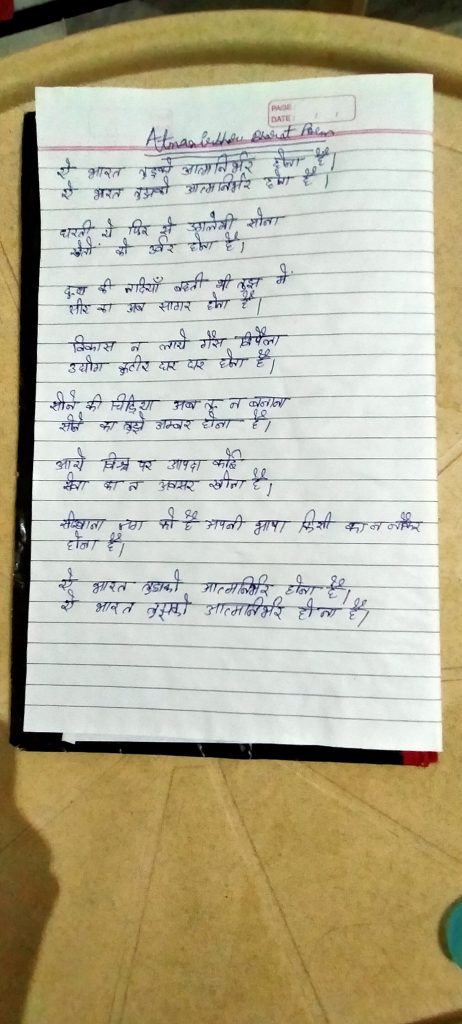 PAGE
DATE
Atmanirbhar Bharat Poem
ऐ भारत तुझको आत्मनिर्भर होना है।
ऐ भारत तुझको आत्मनिर्भर होना है।
धरती ये फिर से उगलेगी सोना
खेतों को उर्वर होना है।
दुग्ध की नदियाँ बहती थी तुझ में
क्षीर का अब सागर होना है।
विकास न लाये गैस विषैला
उद्योग कुटीर दार दार होना है।
सोने की चिड़िया अब तू न बनाना
सोने का तुझे अम्बर होना है।
आये विश्व पर आपदा कोई
सेवा का न अवसर खोना है।
सीखाना जग को है अपनी भाषा किसी का न नौकर
होना है।
ऐ भारत तुझको आत्मनिर्भर होना है।
ऐ भारत तुझको आत्मनिर्भर होना है।